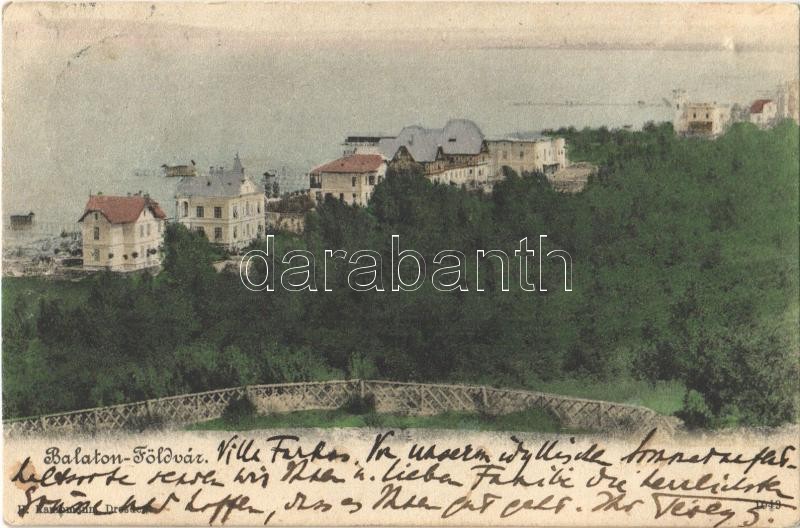 darabanth
Balaton-Földvár. Villa Farkas. Von unserm idyllischen Sommeraufent-
haltsorte senden wir Ihnen u. lieben Familie die herrlichsten
Grüsse und hoffen, dass es Ihnen gut geht. Ihr
Dresden 9949